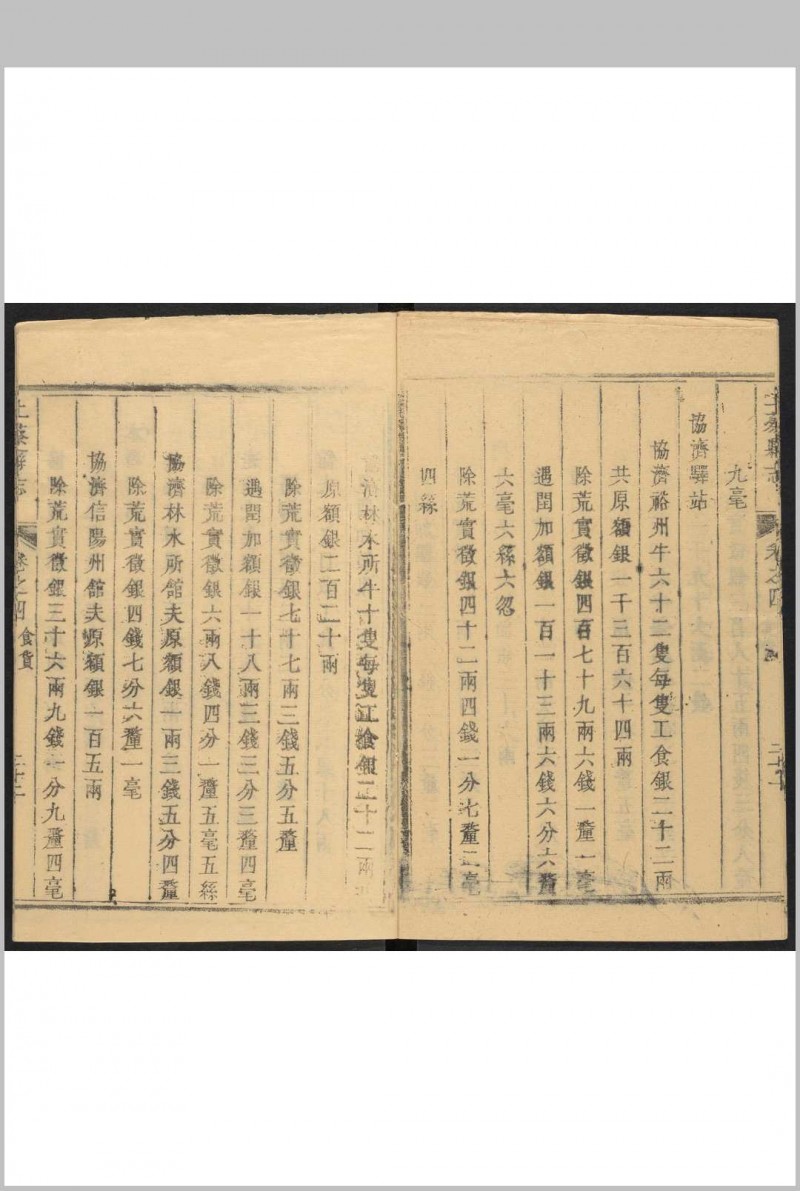 上蔡縣志 卷之四
九毫
協濟驛站
協濟裕州牛六十二隻每隻工食銀二十二兩
共原額銀一千三百六十四兩
除荒實徵銀四百七十九兩六錢一釐一毫
遇閏加額銀一百一十三兩六錢六分六釐
六毫六絲六忽
除荒實徵銀四十二兩四錢一分七釐二毫
四絲
協濟林水所牛十隻每隻工食銀二十二兩
原額銀二百二十兩
除荒實徵銀七十七兩三錢五分五釐
遇閏加額銀一十八兩三錢三分三釐四毫
除荒實徵銀六兩八錢四分一釐五毫五絲
協濟林水所館夫原額銀一兩三錢五分四釐
除荒實徵銀四錢七分六釐一毫
協濟信陽州館夫原額銀一百五兩
除荒實徵銀三十六兩九錢一分九釐四毫
上蔡縣志 卷之四 食貨 二十二